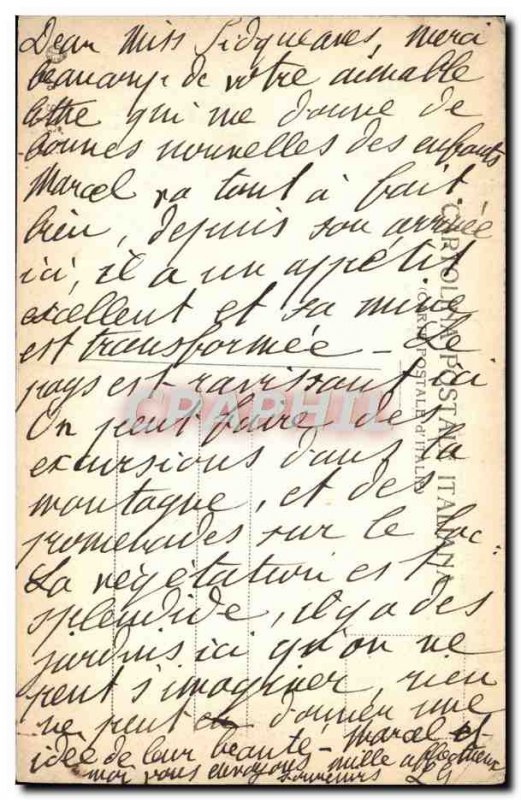 Dear Miss Sidgreaves, merci
beaucoup de votre aimable
lettre qui me donne de
bonnes nouvelles des enfants
Marcel va tout à fait
bien, depuis son arrivée
ici, il a un appétit
excellent et sa mine
est transformée - Le
pays est ravissant ici
On peut faire des
excursions dans la
montagne, et des
promenades sur le lac.
La végétation est
splendide, il y a des
jardins ici qu'on ne
peut s'imaginer, rien
ne peut donner une
idée de leur beauté - Marcel et
moi vous envoyons mille affectueux
souvenirs
CARTOLINA POSTALE ITALIANA
(CARTE POSTALE d'ITALIE)
CPAPHIL